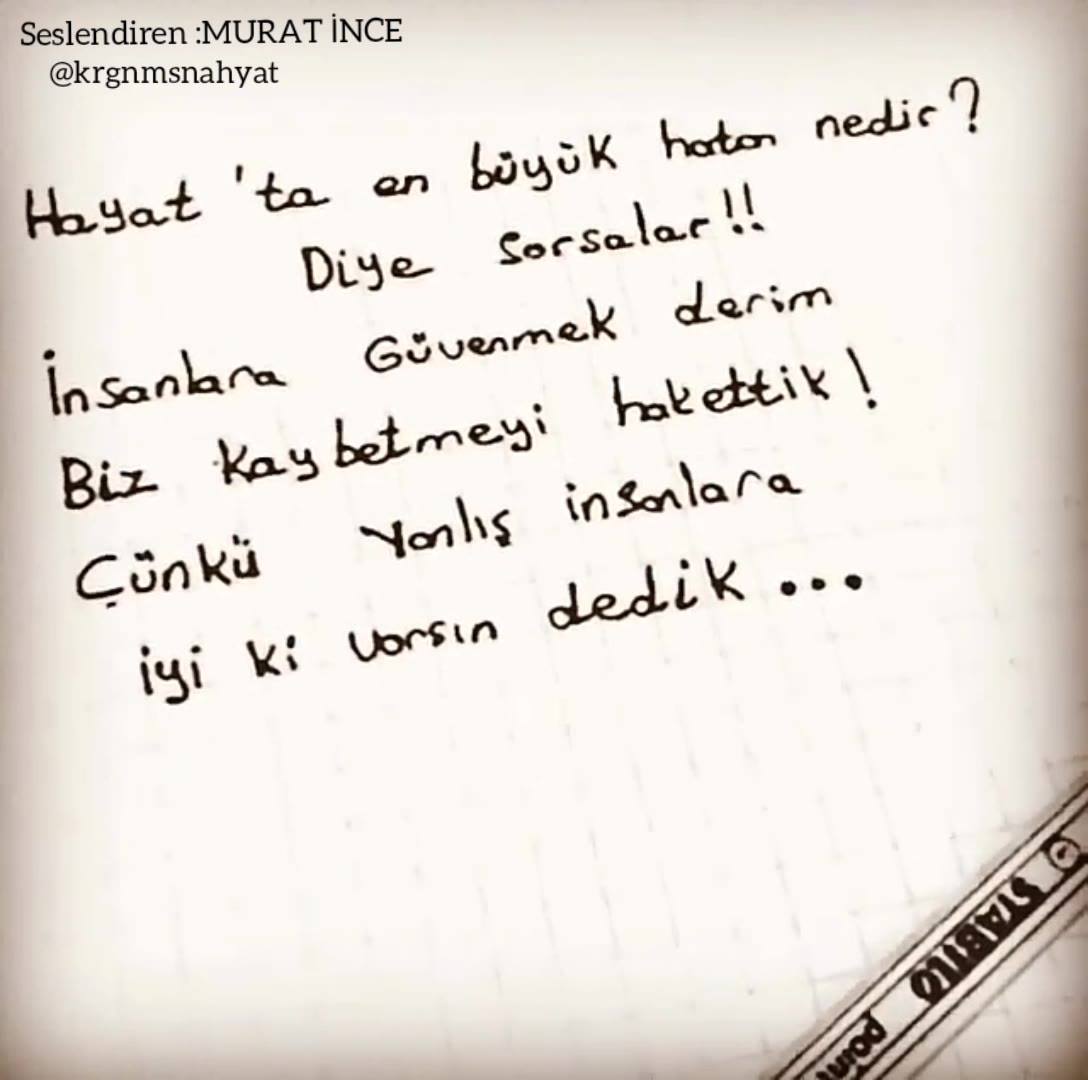 Seslendiren :MURAT İNCE
@krgnmsnahyat
Hayat 'ta en büyük hatan nedir?
Diye Sorsalar!!
İnsanlara Güvenmek derim
Biz Kaybetmeyi hakettik!
Çünkü Yanlış insanlara
iyi ki varsın dedik...
STABILO
point